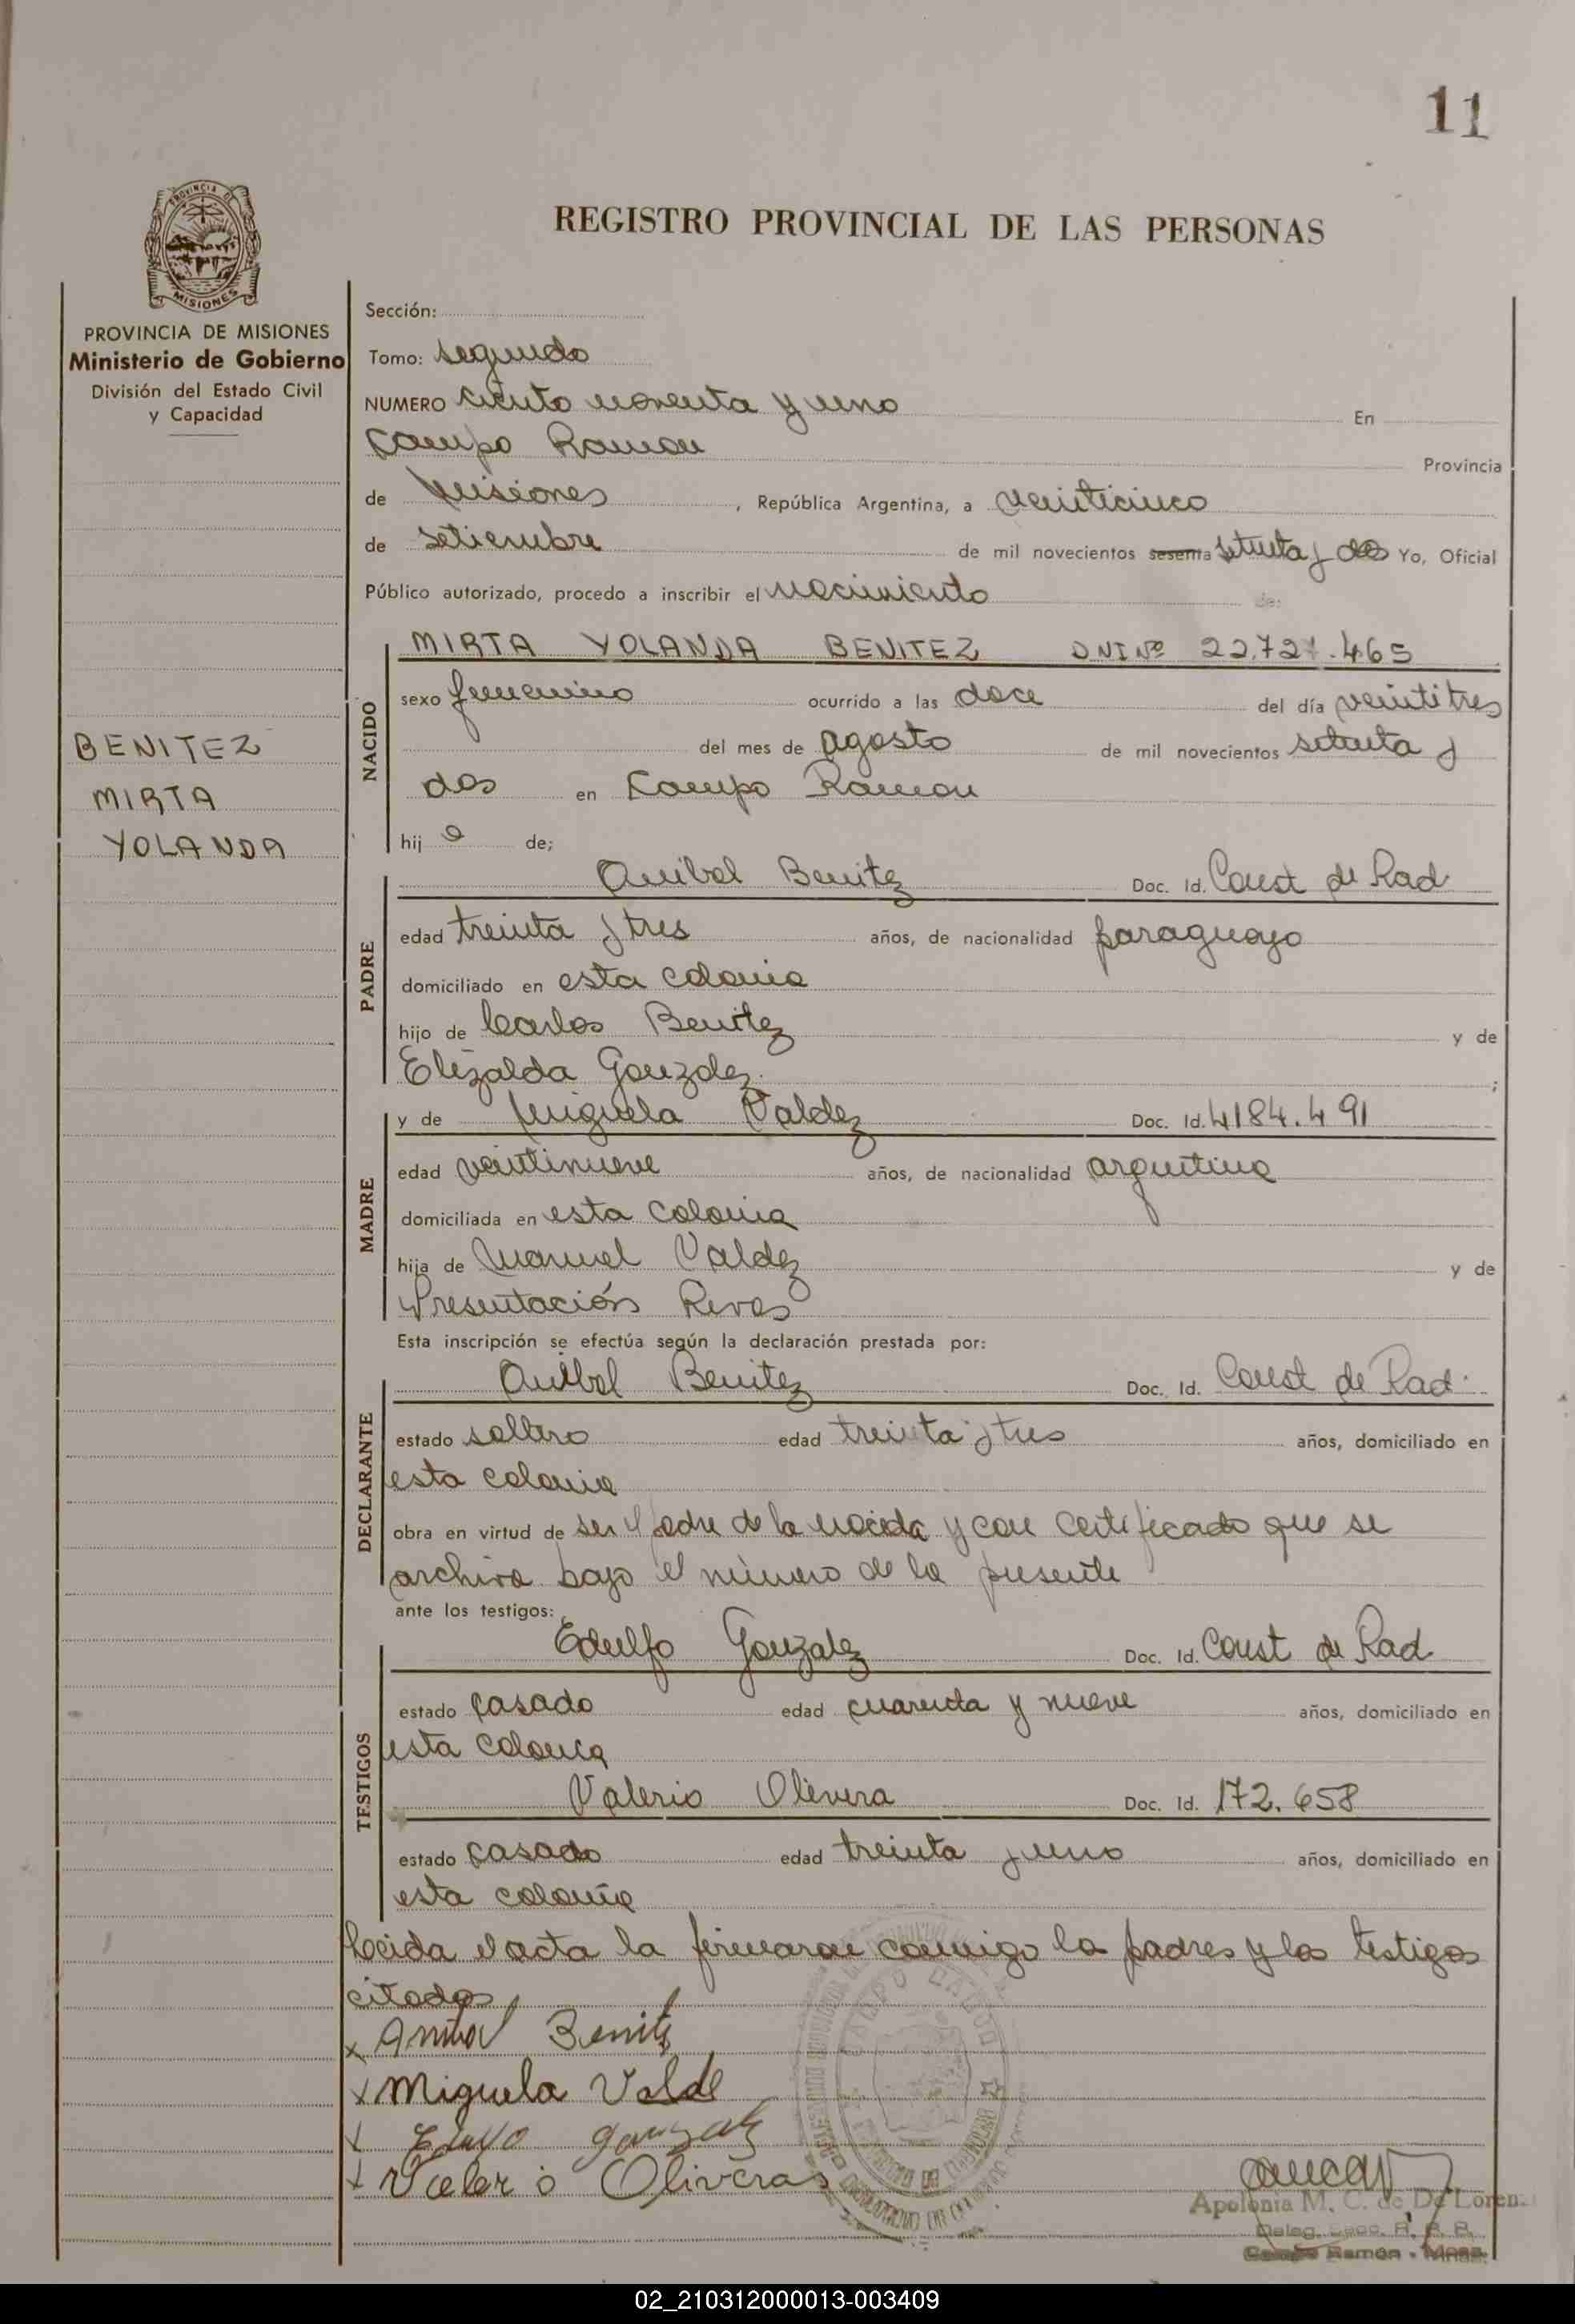 11
REGISTRO PROVINCIAL DE LAS PERSONAS
PROVINCIA DE
MISIONES
PROVINCIA DE MISIONES
Ministerio de Gobierno
División del Estado Civil
y Capacidad
BENITEZ
MIRTA
YOLANDA
Sección:
Tomo: segundo
NUMERO ciento noventa y uno En
Campo Ramon Provincia
de Misiones, República Argentina, a veinticinco
de setiembre de mil novecientos sesenta setenta y dos Yo, Oficial
Público autorizado, procedo a inscribir el nacimiento de:
NACIDO
MIRTA YOLANDA BENITEZ DNI Nº 22.721.465
sexo femenino ocurrido a las doce del día veintitres
del mes de agosto de mil novecientos setenta y
dos en Campo Ramon
hij a de;
PADRE
Anibal Benitez Doc. Id. Const de Rad
edad treinta y tres años, de nacionalidad paraguayo
domiciliado en esta colonia
hijo de Carlos Benitez y de
Elizalda Gonzalez ;
MADRE
y de Miguela Valdez Doc. Id. 4184.491
edad veintinueve años, de nacionalidad argentina
domiciliada en esta colonia
hija de Manuel Valdez y de
Presentación Reves
Esta inscripción se efectúa según la declaración prestada por:
DECLARANTE
Anibal Benitez Doc. Id. Const de Rad.
estado soltero edad treinta y tres años, domiciliado en
esta colonia
obra en virtud de ser el padre de la nacida y con certificado que se
archiva bajo el número de la presente
ante los testigos:
TESTIGOS
Edulfo Gonzalez Doc. Id. Const de Rad
estado casado edad cuarenta y nueve años, domiciliado en
esta colonia
Valerio Olivera Doc. Id. 172.658
estado casado edad treinta y uno años, domiciliado en
esta colonia
Leida el acta la firmaron conmigo los padres y los testigos
citados
x Anibal Benitz
x Miguela Valde
x gonzalez
x Valerio Oliveras
CAMPO RAMON
Apolonia M. C. de De Lorenz
Deleg. Secc. R. P. P.
Campo Ramón - Mnes.
02_210312000013-003409